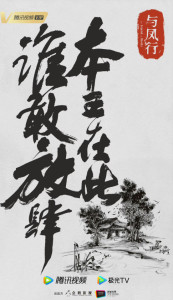 腾讯视频VIP
与凤行
本王在此
谁敢放肆
腾讯视频
极光TV